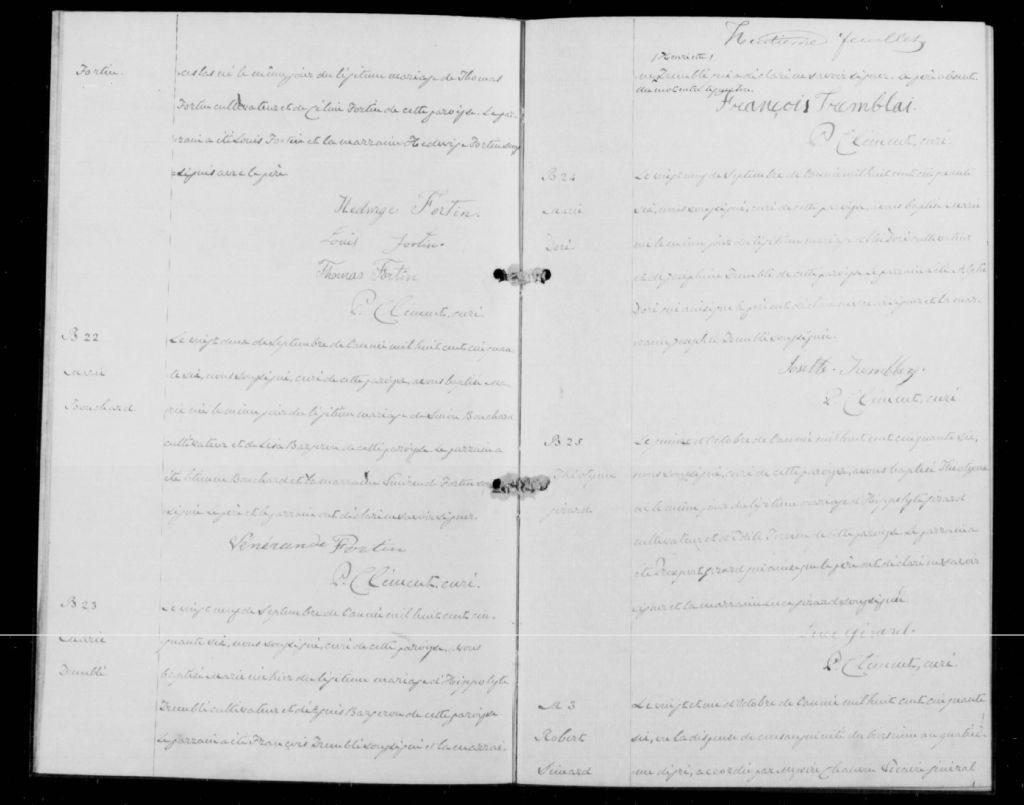 Fortin
né le même jour du légitime mariage de Thomas
Fortin cultivateur et de Céline Fortin de cette paroisse. Le par-
rain a été Louis Fortin et la marraine Hedwige Fortin sous
signés avec le père
Hedwige Fortin.
Louis Fortin.
Thomas Fortin
P. Clément, curé.
B 22
Marie
Bouchard
Le vingt deux de Septembre de l'année mil huit cent cinquan
te six, nous soussigné, curé de cette paroisse, avons baptisé Ma-
rie née le même jour du légitime mariage de Siméon Bouchard
cultivateur et de Lisa Bergeron de cette paroisse. Le parrain a
été Bouchard et la marraine Fortin sous
signée. Le père et le parrain ont déclaré ne savoir signer.
Vénérande Fortin
P. Clément, curé.
B 23
Marie
Tremblé
Le vingt neuf de Septembre de l'année mil huit cent cin-
quante six, nous soussigné, curé de cette paroisse, avons
baptisé Marie née hier du légitime mariage d'Hippolyte
Tremblé cultivateur et de Bergeron de cette paroisse
Le parrain a été François Tremblé soussigné et la marrai-
Huitième feuillet
(Henriette)
ne Tremblé qui a déclaré ne savoir signer. Le père absent.
François Tremblai.
P. Clément, curé.
B 24
Marie
Doré
Le vingt neuf de Septembre de l'année mil huit cent cinquante
six, nous soussigné, curé de cette paroisse, avons baptisé Marie
née le même jour du légitime mariage Doré cultivateur
et de Joséphine Tremblé de cette paroisse. Le parrain a été
Doré qui ainsi que le père ont déclaré ne savoir signer et la mar-
raine Tremblé soussignée.
Josette Tremblay.
P. Clément, curé
B 25
Théotyme
Girard
Le d'Octobre de l'année mil huit cent cinquante six,
nous soussigné, curé de cette paroisse, avons baptisé Théotyme
né le même jour du légitime mariage d'Hippolyte Girard
cultivateur et d'Edile de cette paroisse. Le parrain a
été Prospert Girard qui ainsi que le père ont déclaré ne savoir
signer et la marraine Luce Girard soussignée
Luce Girard.
P. Clément, curé.
M 3
Robert
Simard
Le vingt et un d'Octobre de l'année mil huit cent cinquante
six, vu la dispense de consanguinité du troisième au quatriè-
me degré, accordée par Mgr Vicaire général